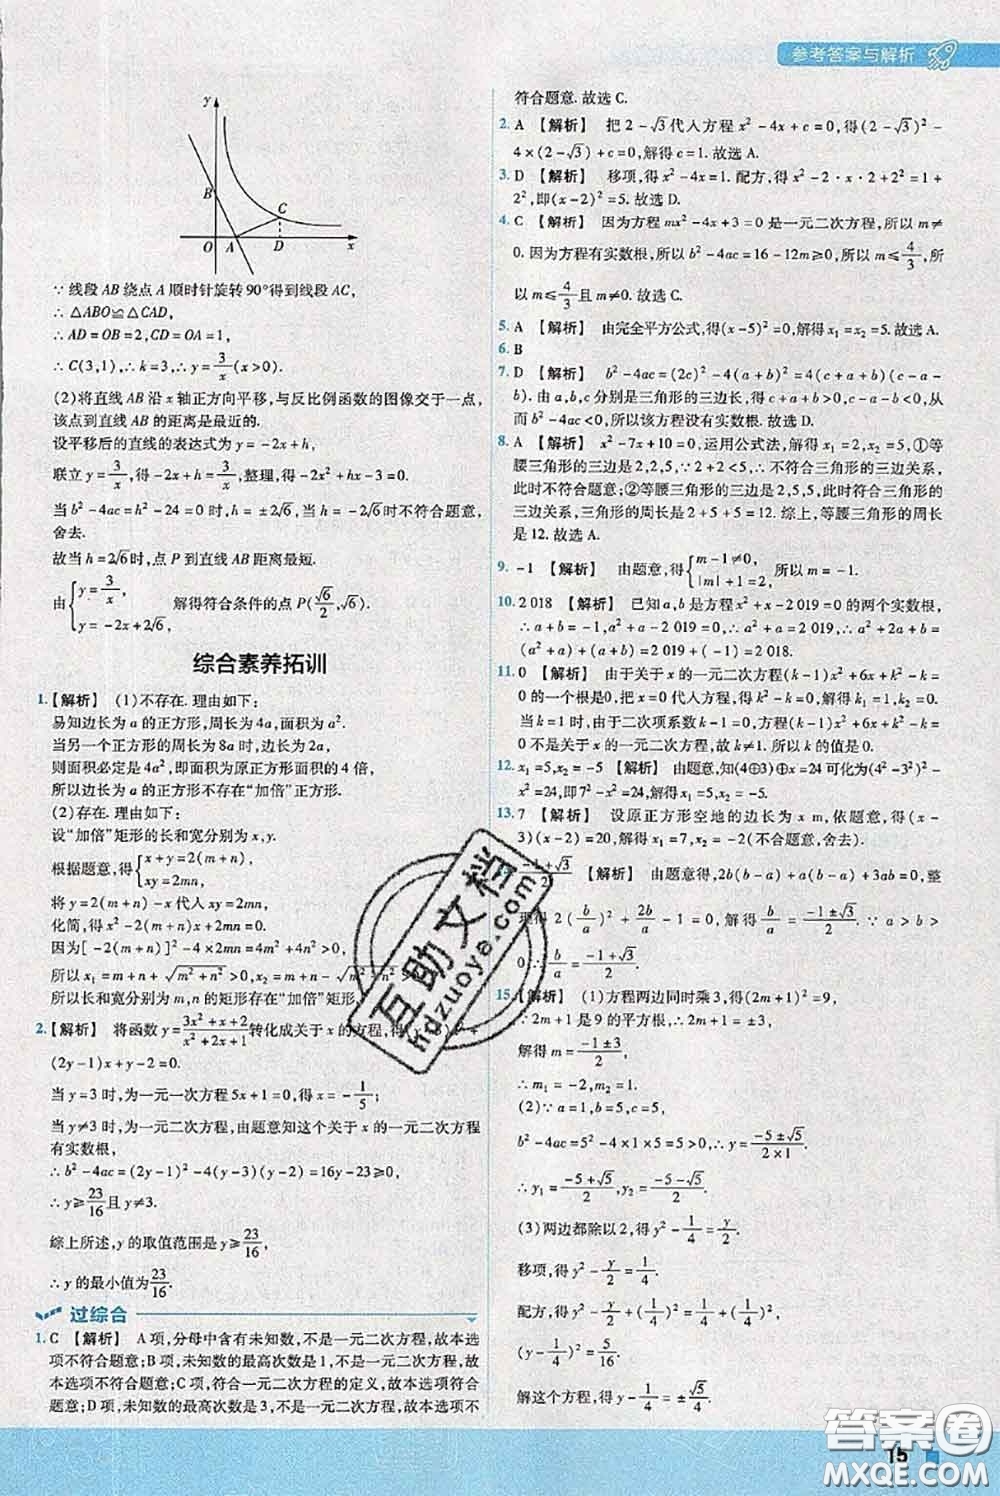 参考答案与解析
y
B
C
O A D x
∵线段 AB 绕点 A 顺时针旋转 90°得到线段 AC,
∴△ABO≌△CAD,
∴AD=OB=2,CD=OA=1,
∴C(3,1),∴k=3,∴y=3/x(x>0).
(2)将直线 AB 沿 x 轴正方向平移,与反比例函数的图像交于一点,
该点到直线 AB 的距离是最近的.
设平移后的直线的表达式为 y=-2x+h,
联立 y=3/x,得-2x+h=3/x,整理,得-2x²+hx-3=0.
当 b²-4ac=h²-24=0 时,h=±2√6,当 h=-2√6时,不符合题意,
舍去.
故当 h=2√6时,点 P 到直线 AB 距离最短.
由{y=3/x, y=-2x+2√6, 解得符合条件的点 P(√6/2,√6).
综合素养拓训
1.【解析】 (1)不存在. 理由如下:
易知边长为 a 的正方形,周长为 4a,面积为 a².
当另一个正方形的周长为 8a 时,边长为 2a,
则面积必定是 4a²,即面积为原正方形面积的 4 倍,
所以边长为 a 的正方形不存在“加倍”正方形.
(2)存在. 理由如下:
设“加倍”矩形的长和宽分别为 x,y.
根据题意,得{x+y=2(m+n), xy=2mn,
将 y=2(m+n)-x 代入 xy=2mn,
化简,得 x²-2(m+n)x+2mn=0.
因为[-2(m+n)]²-4×2mn=4m²+4n²>0,
所以 x₁=m+n+√(m²+n²)>0,x₂=m+n-√(m²+n²)
所以长和宽分别为 m,n 的矩形存在“加倍”矩形
2.【解析】 将函数 y=(3x²+x+2)/(x²+2x+1)转化成关于 x 的方程,得(y-3)x²+
(2y-1)x+y-2=0.
当 y=3 时,为一元一次方程 5x+1=0,得 x=-1/5;
当 y≠3 时,为一元二次方程,由题意知这个关于 x 的一元二次方程
有实数根,
∴b²-4ac=(2y-1)²-4(y-3)(y-2)=16y-23≥0,
∴y≥23/16且 y≠3.
综上所述,y 的取值范围是 y≥23/16,
∴y 的最小值为23/16.
过综合
1. C 【解析】 A 项,分母中含有未知数,不是一元二次方程,故本选
项不符合题意;B 项,未知数的最高次数是 1,不是一元二次方程,故
本选项不符合题意;C 项,符合一元二次方程的定义,故本选项符合
题意;D 项,未知数的最高次数是 3,不是一元二次方程,故本选项不
符合题意. 故选 C.
2. A 【解析】 把 2-√3代入方程 x²-4x+c=0,得(2-√3)²-
4×(2-√3)+c=0,解得 c=1. 故选 A.
3. D 【解析】 移项,得 x²-4x=1. 配方,得 x²-2·x·2+2²=1+
2²,即(x-2)²=5. 故选 D.
4. C 【解析】 因为方程 mx²-4x+3=0 是一元二次方程,所以 m≠
0. 因为方程有实数根,所以 b²-4ac=16-12m≥0,所以 m≤4/3,所
以 m≤4/3且 m≠0. 故选 C.
5. A 【解析】 由完全平方公式,得(x-5)²=0,解得 x₁=x₂=5. 故选 A.
6. B
7. D 【解析】 b²-4ac=(2c)²-4(a+b)²=4(a+b+c)(c-a-
b). 由 a,b,c 分别是三角形的三边长,得 c+a+b>0,c-a-b<0,则
b²-4ac<0,所以该方程没有实数根. 故选 D.
8. A 【解析】 x²-7x+10=0,运用公式法,解得 x₁=2,x₂=5,①等
腰三角形的三边是 2,2,5,∵2+2<5,∴不符合三角形的三边关系,
此时不符合题意;②等腰三角形的三边是 2,5,5,此时符合三角形的
三边关系,三角形的周长是 2+5+5=12. 综上,等腰三角形的周长
是 12. 故选 A.
9. -1 【解析】 由题意,得{m-1≠0, |m|+1=2, 所以 m=-1.
10. 2 018 【解析】 已知 a,b 是方程 x²+x-2 019=0 的两个实数根,
∴a+b=-1,a²+a-2 019=0,∴a²+a=2 019,∴a²+2a+b=
(a²+a)+(a+b)=2 019+(-1)=2 018.
11. 0 【解析】 由于关于 x 的一元二次方程(k-1)x²+6x+k²-k=
0 的一个根是 0,把 x=0 代入方程,得 k²-k=0,解得 k₁=1,k₂=0.
当 k=1 时,由于二次项系数 k-1=0,方程(k-1)x²+6x+k²-k=
0 不是关于 x 的一元二次方程,故 k≠1. 所以 k 的值是 0.
12. x₁=5,x₂=-5 【解析】 由题意,知(4⊕3)⊕x=24 可化为(4²-3²)²-
x²=24,即7²-x²=24,解得 x₁=5,x₂=-5.
13. 7 【解析】 设原正方形空地的边长为 x m,依题意,得(x-
3)(x-2)=20,解得 x₁=7,x₂=-2(不合题意,舍去).
(-1+√3)/2 【解析】 由题意得,2b(b-a)+a(b-a)+3ab=0,整
理得 2(b/a)²+2b/a-1=0,解得b/a=(-1±√3)/2. ∵a>b>
0,∴b/a=(-1+√3)/2.
15.【解析】 (1)方程两边同时乘 3,得(2m+1)²=9,
∵2m+1 是 9 的平方根,∴2m+1=±3,
解得 m=(-1±3)/2,
∴m₁=-2,m₂=1.
(2)∵a=1,b=5,c=5,
b²-4ac=5²-4×1×5=5>0,∴y=(-5±√5)/(2×1).
∴y₁=(-5+√5)/2,y₂=(-5-√5)/2.
(3)两边都除以 2,得 y²-1/4=y/2.
移项,得 y²-y/2=1/4.
配方,得 y²-y/2+(1/4)²=1/4+(1/4)²,
(y-1/4)²=5/16.
解这个方程,得 y-1/4=±√5/4
15
互助文档
hdzuoye.com
答案圈
MXQE.COM